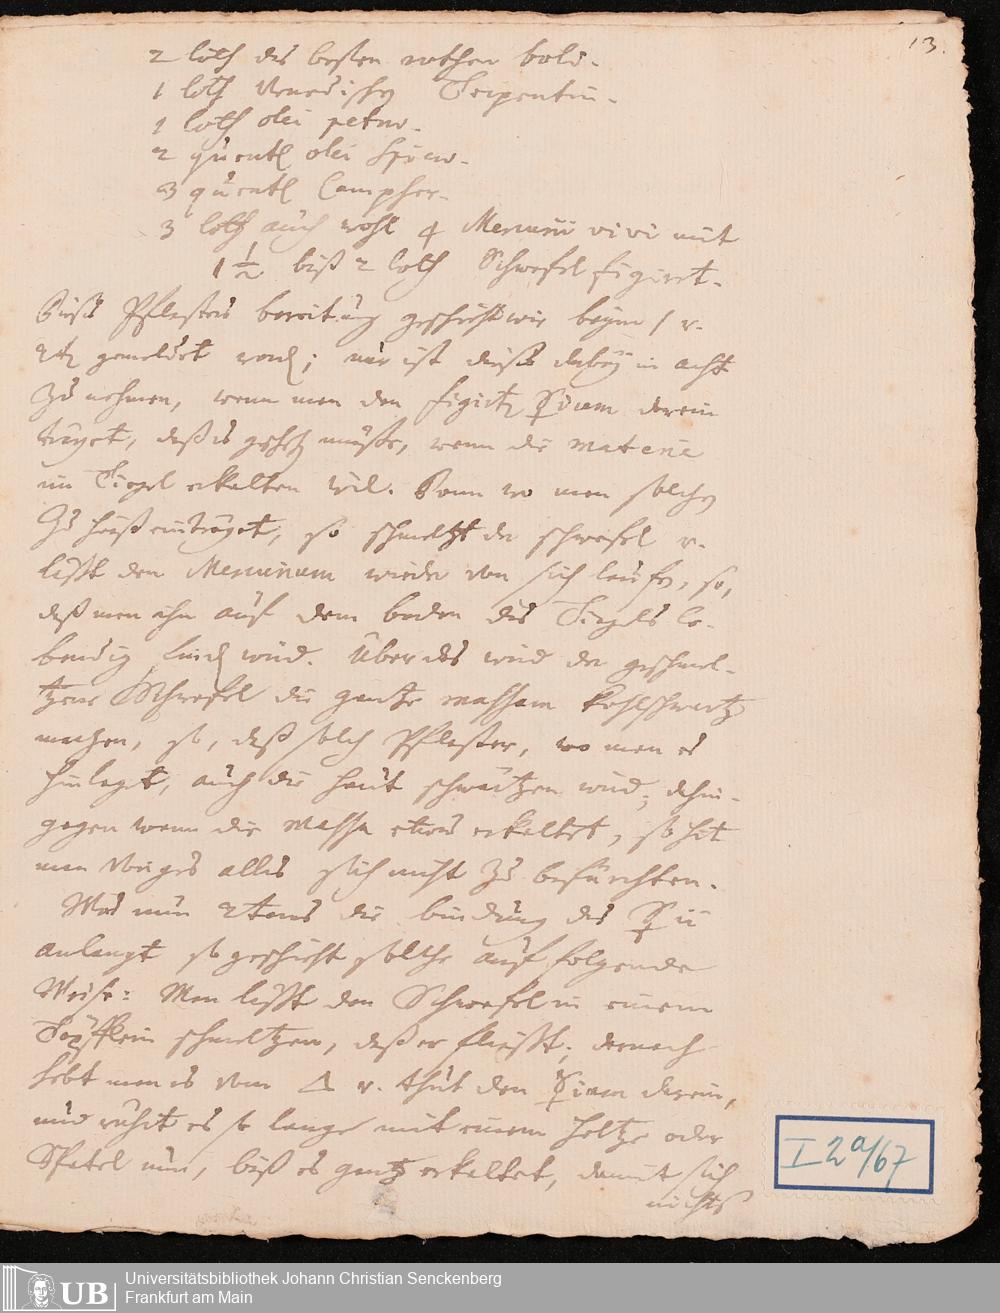 13.
2 loth des besten rothen boli.
1 loth Venedischen Terpentin.
1 loth olei petrae.
2 quentl olei spicae.
3 quentl Campher.
3 loth auch wohl 4 Mercurii vivi mit
1 1/2 biß 2 loth Schwefel figiret.
Dieses Pflasters bereitung geschieht wie beym
gemeldet word; nur ist dieses dabey in acht
zu nehmen, wenn man den figirten ☿ium darein
träget, daß es geschehen müsse, wenn die materie
im Tiegel erkalten wil. Denn wo man solchen
zu heiß einträget, so schmeltzt der schwefel v.
läßt den Mercurium wieder von sich lauffen, so,
daß man ihn auf dem boden des Tiegels le-
bendig finden wird. Über das wird der geschmel-
tzene Schwefel die gantze massam kohlschwartz
machen, so, daß solch Pflaster, wo man es
hinleget, auch die haut schwärtzen wird; dahin-
gegen wenn die massa etwas erkaltet, so hat
man voriges alles sich nicht zu befürchten.
Was nun 2tens die bindung des ☿ii
anlangt so geschieht solche auf folgende
Weise: Man läßt den Schwefel in einem
Töpfflein schmeltzen, daß er fließt; darnach
hebt man es vom 🜂 v. thut den ☿ium darein,
und rührt es so lange mit einem holtze oder
Spatel um, biß es gantz erkaltet, damit sich
nichts
I 2a/67
UB
Universitätsbibliothek Johann Christian Senckenberg
Frankfurt am Main